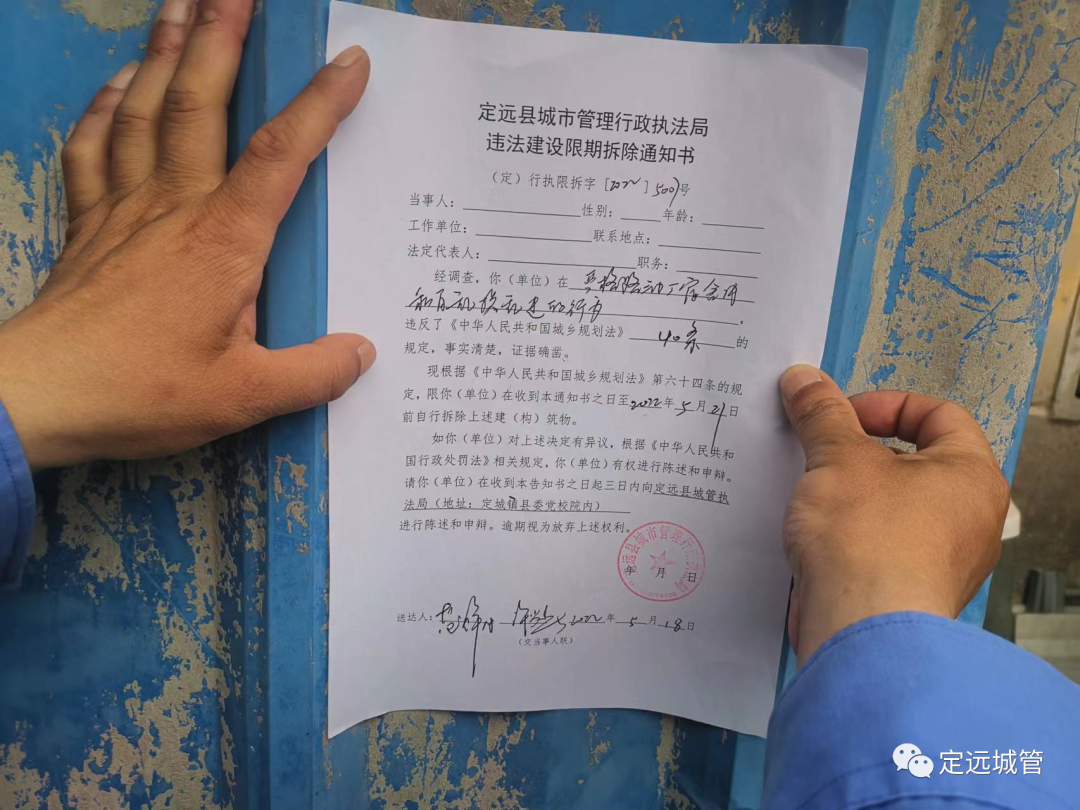 定远县城市管理行政执法局
违法建设限期拆除通知书
（定）行执限拆字［2022］500 号
当事人：性别：年龄：
工作单位：联系地点：
法定代表人：职务：
经调查，你（单位）在
违反了《中华人民共和国城乡规划法》40条的
规定，事实清楚，证据确凿。
现根据《中华人民共和国城乡规划法》第六十四条的规
定，限你（单位）在收到本通知书之日至2022年5月21日
前自行拆除上述建（构）筑物。
如你（单位）对上述决定有异议，根据《中华人民共和
国行政处罚法》相关规定，你（单位）有权进行陈述和申辩。
请你（单位）在收到本告知书之日起三日内向定远县城管执
法局（地址：定城镇县委党校院内）
进行陈述和申辩。逾期视为放弃上述权利。
定远县城市管理行
年 月 日
送达人：2022年5月18日
（交当事人联）
定远城管